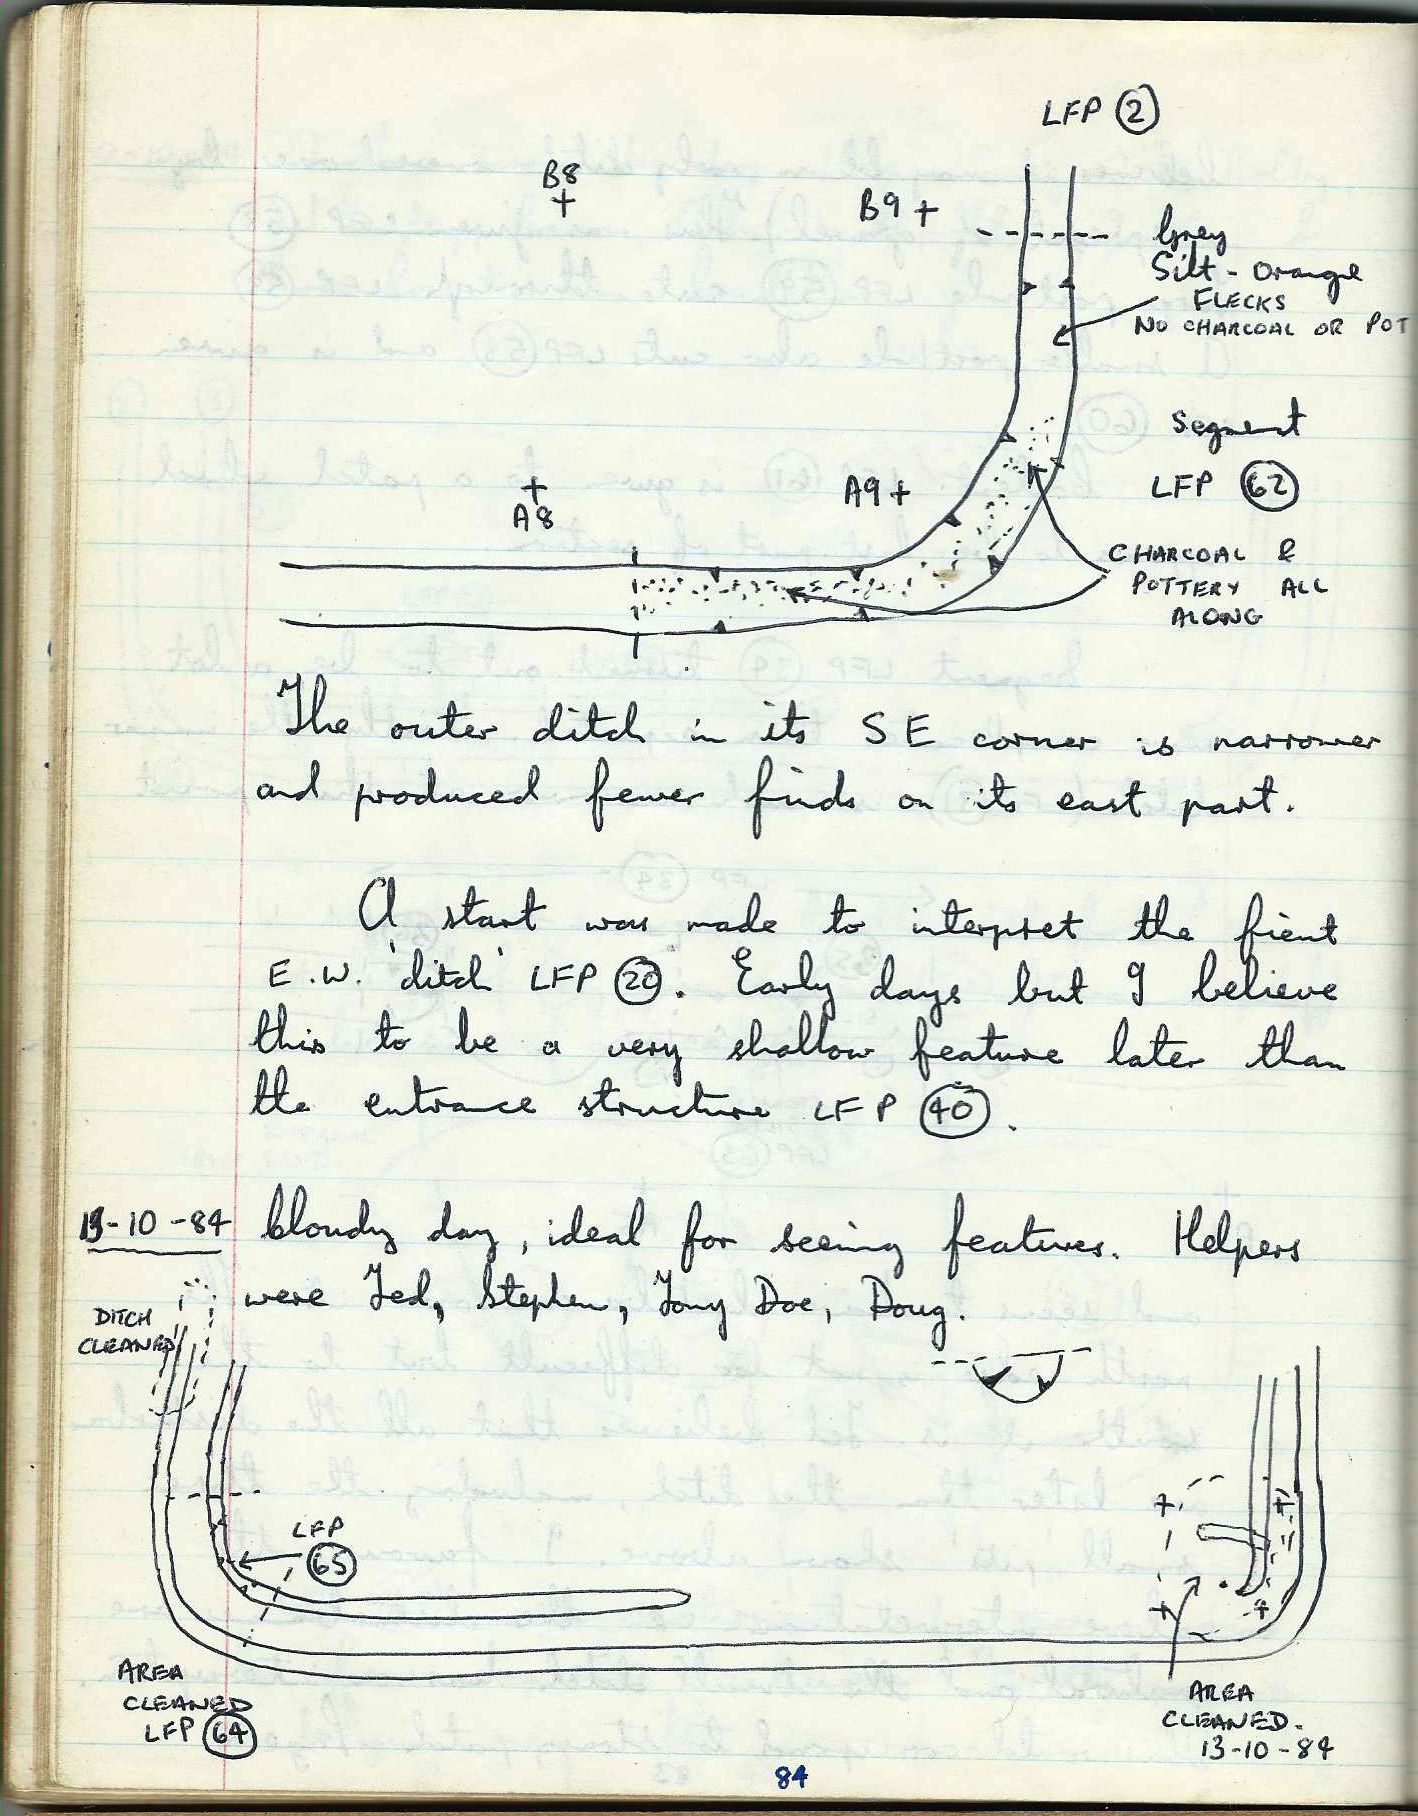 LFP 2
B8
B9
Grey
Silt - Orange
FLECKS
NO CHARCOAL OR POT
Segment
LFP 62
A8
A9
CHARCOAL &
POTTERY ALL
ALONG
The outer ditch in its SE corner is narrower
and produced fewer finds on its east part.
A start was made to interpret the
E.W. 'ditch' LFP 20. Early days but I believe
this to be a very shallow feature later than
the entrance structure LFP 40.
13-10-84 Cloudy day, ideal for seeing features. Helpers
were Ted, Stephen, Tony Doe, Doug.
DITCH
CLEANED
LFP
65
AREA
CLEANED
LFP 64
AREA
CLEANED.
13-10-84
84